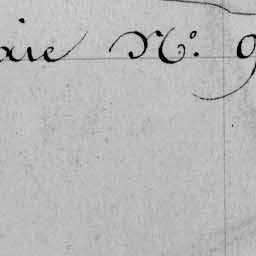 aie N.º 9